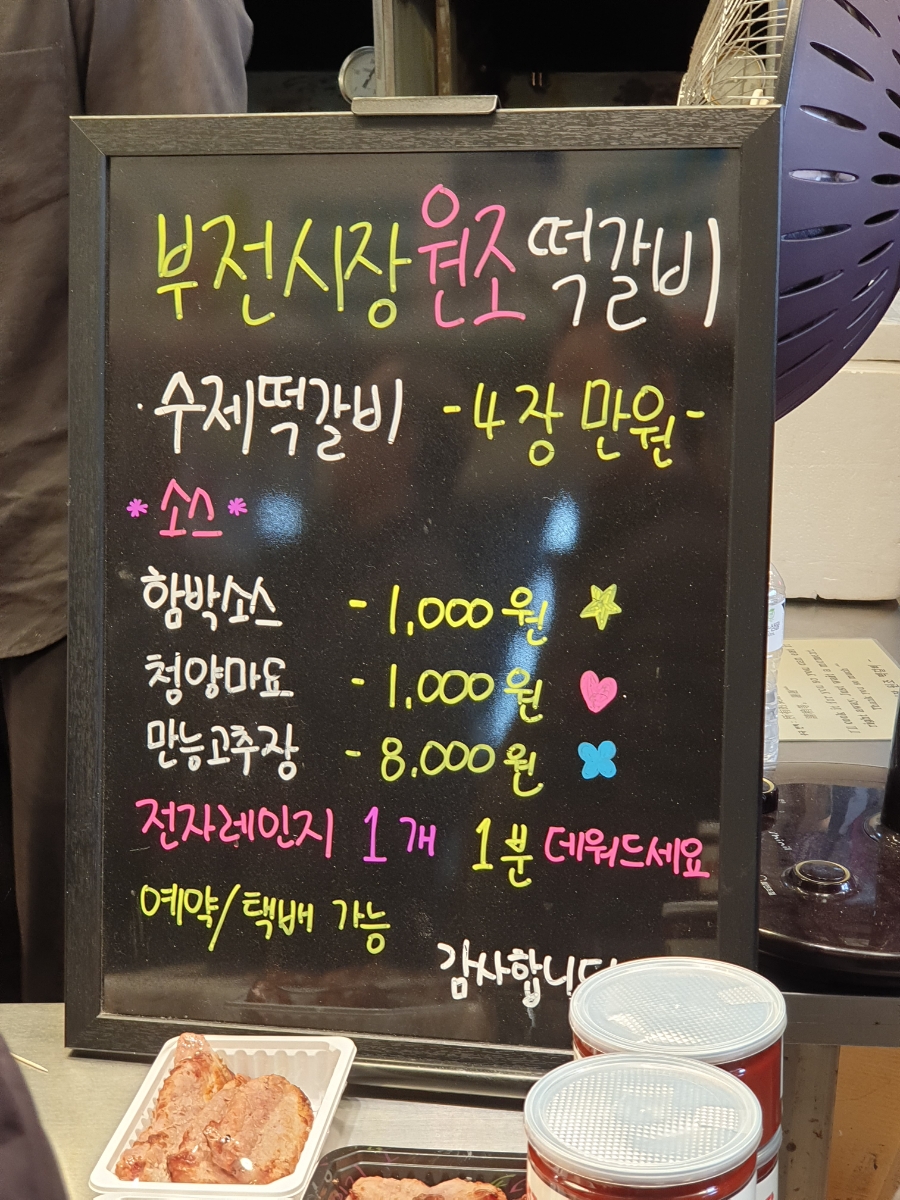 부전시장 원조 떡갈비
· 수제떡갈비 -4장 만원-
* 소스 *
함박소스 - 1,000원
청양마요 - 1,000원
만능고추장 - 8,000원
전자레인지 1개 1분 데워드세요
예약/택배 가능
감사합니다